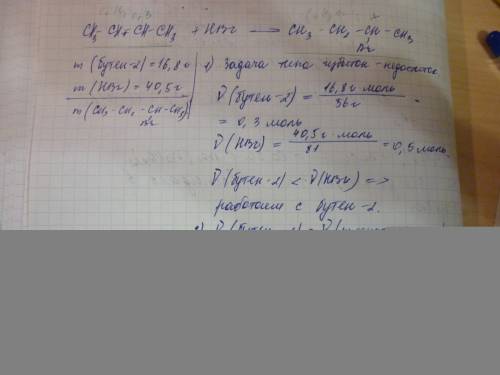 CH₃-CH=CH-CH₃ + HBr → CH₃-CH₂-CH-CH₃
Br
m (бутен-2) = 16,8 г
m (HBr) = 40,5 г
m (CH₃-CH₂-CH-CH₃)
Br
1) Задача типа избыток-недостаток
ν (бутен-2) = 16,8 г · моль / 56 г
= 0,3 моль
ν (HBr) = 40,5 г · моль / 81 = 0,5 моль.
ν (бутен-2) < ν (HBr) =>
работаем с бутен-2.